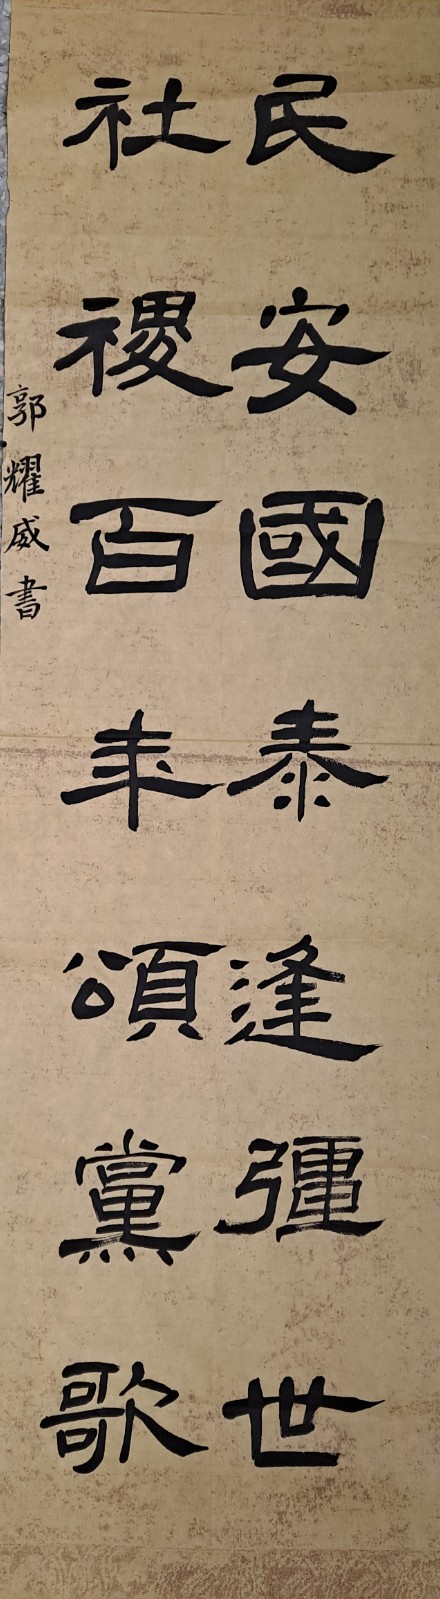 民安國泰逢彊世
社稷百年頌黨歌
郭耀威書